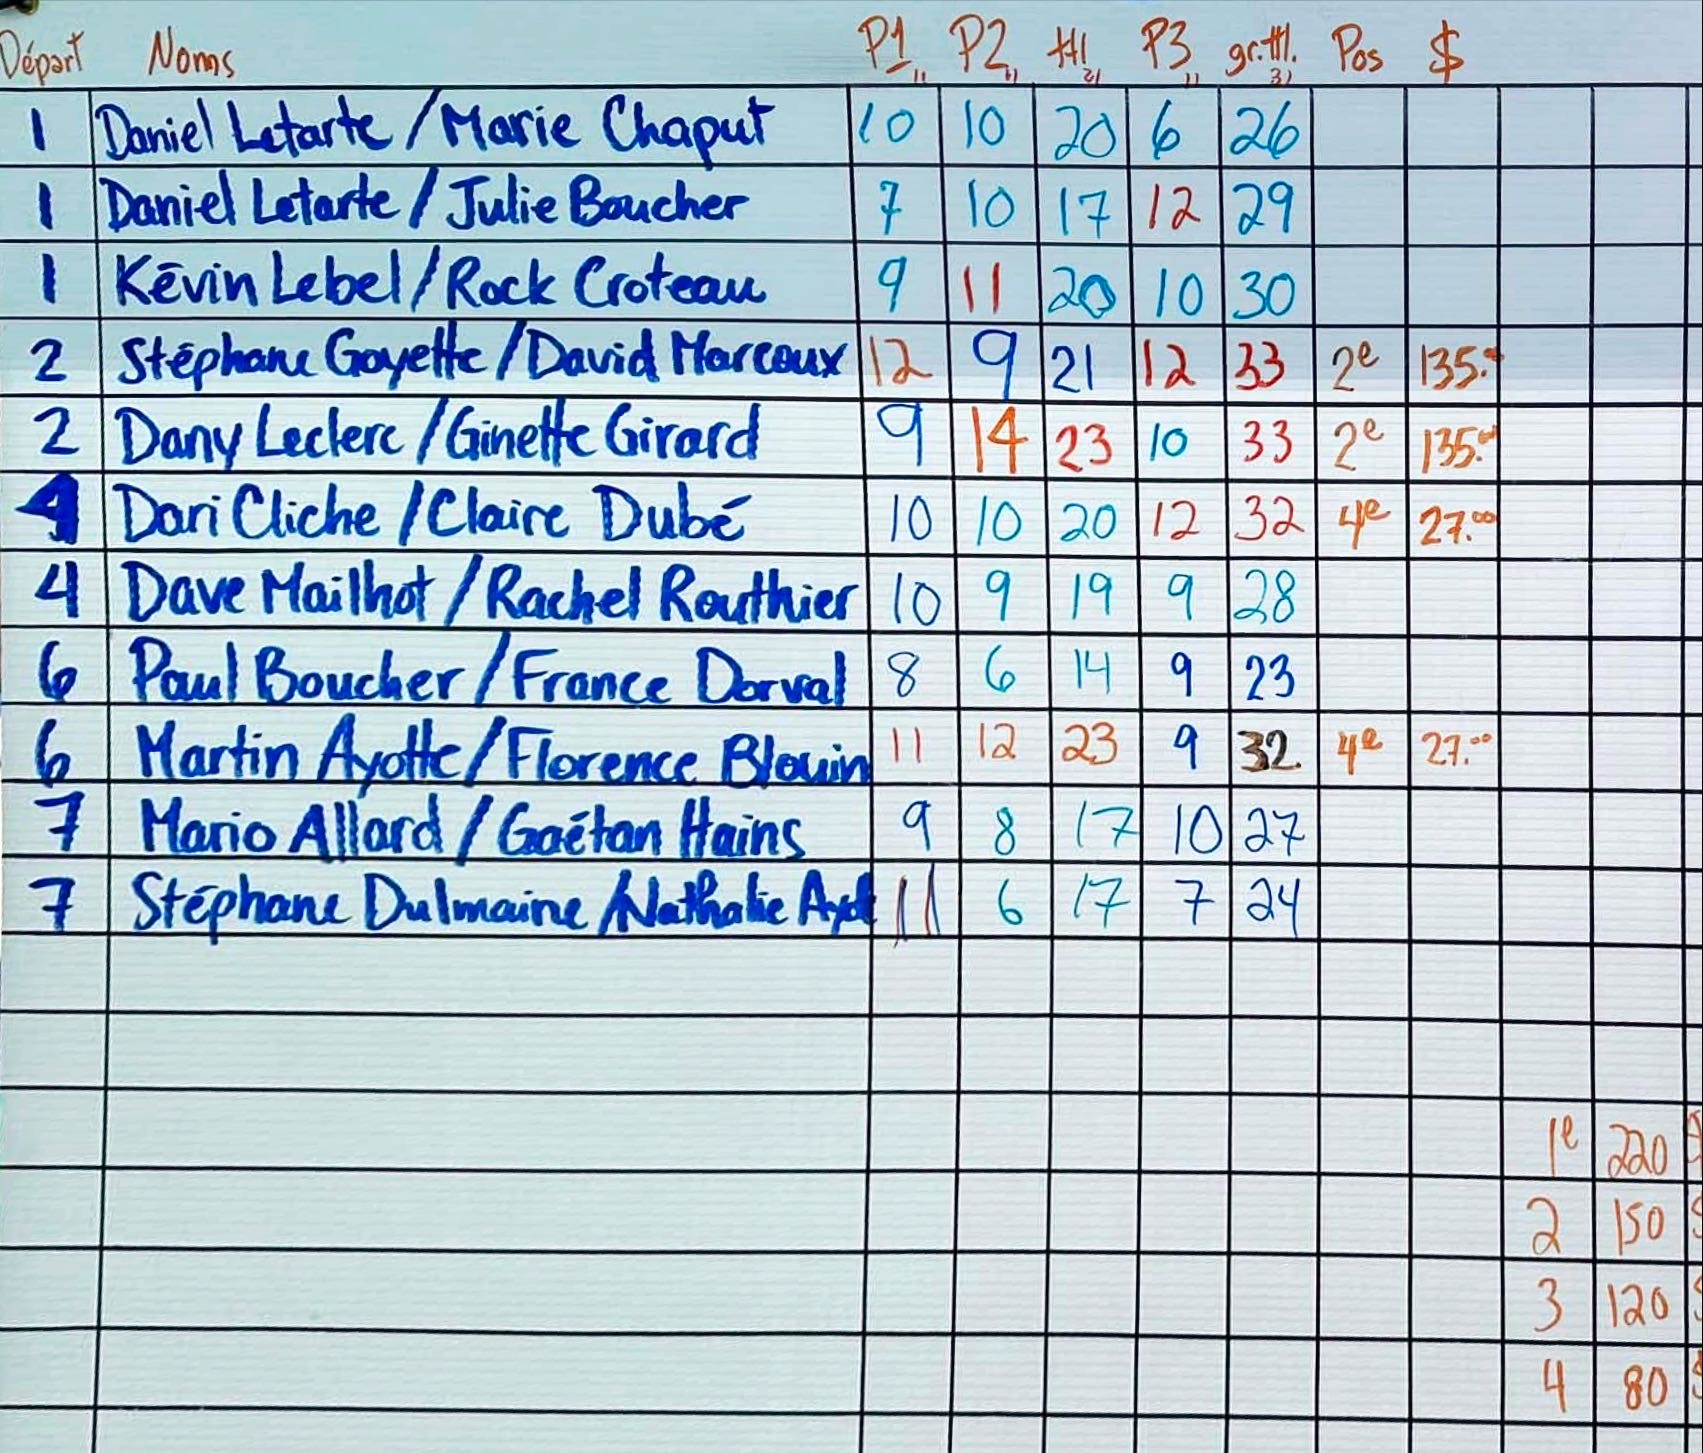 Départ Noms P1 P2 ttl P3 gr.ttl. Pos $
1 Daniel Letarte / Marie Chaput 10 10 20 6 26
1 Daniel Letarte / Julie Boucher 7 10 17 12 29
1 Kévin Lebel / Rock Croteau 9 11 20 10 30
2 Stéphane Goyette / David Marcoux 12 9 21 12 33 2e 135.00
2 Dany Leclerc / Ginette Girard 9 14 23 10 33 2e 135.00
4 Dari Cliche / Claire Dubé 10 10 20 12 32 4e 27.00
4 Dave Mailhot / Rachel Routhier 10 9 19 9 28
6 Paul Boucher / France Dorval 8 6 14 9 23
6 Martin Ayotte / Florence Blouin 11 12 23 9 32 4e 27.00
7 Mario Allard / Gaétan Hains 9 8 17 10 27
7 Stéphane Dulmaine / Nathalie Ayot 11 6 17 7 24
1e 220 $
2 150 $
3 120 $
4 80 $